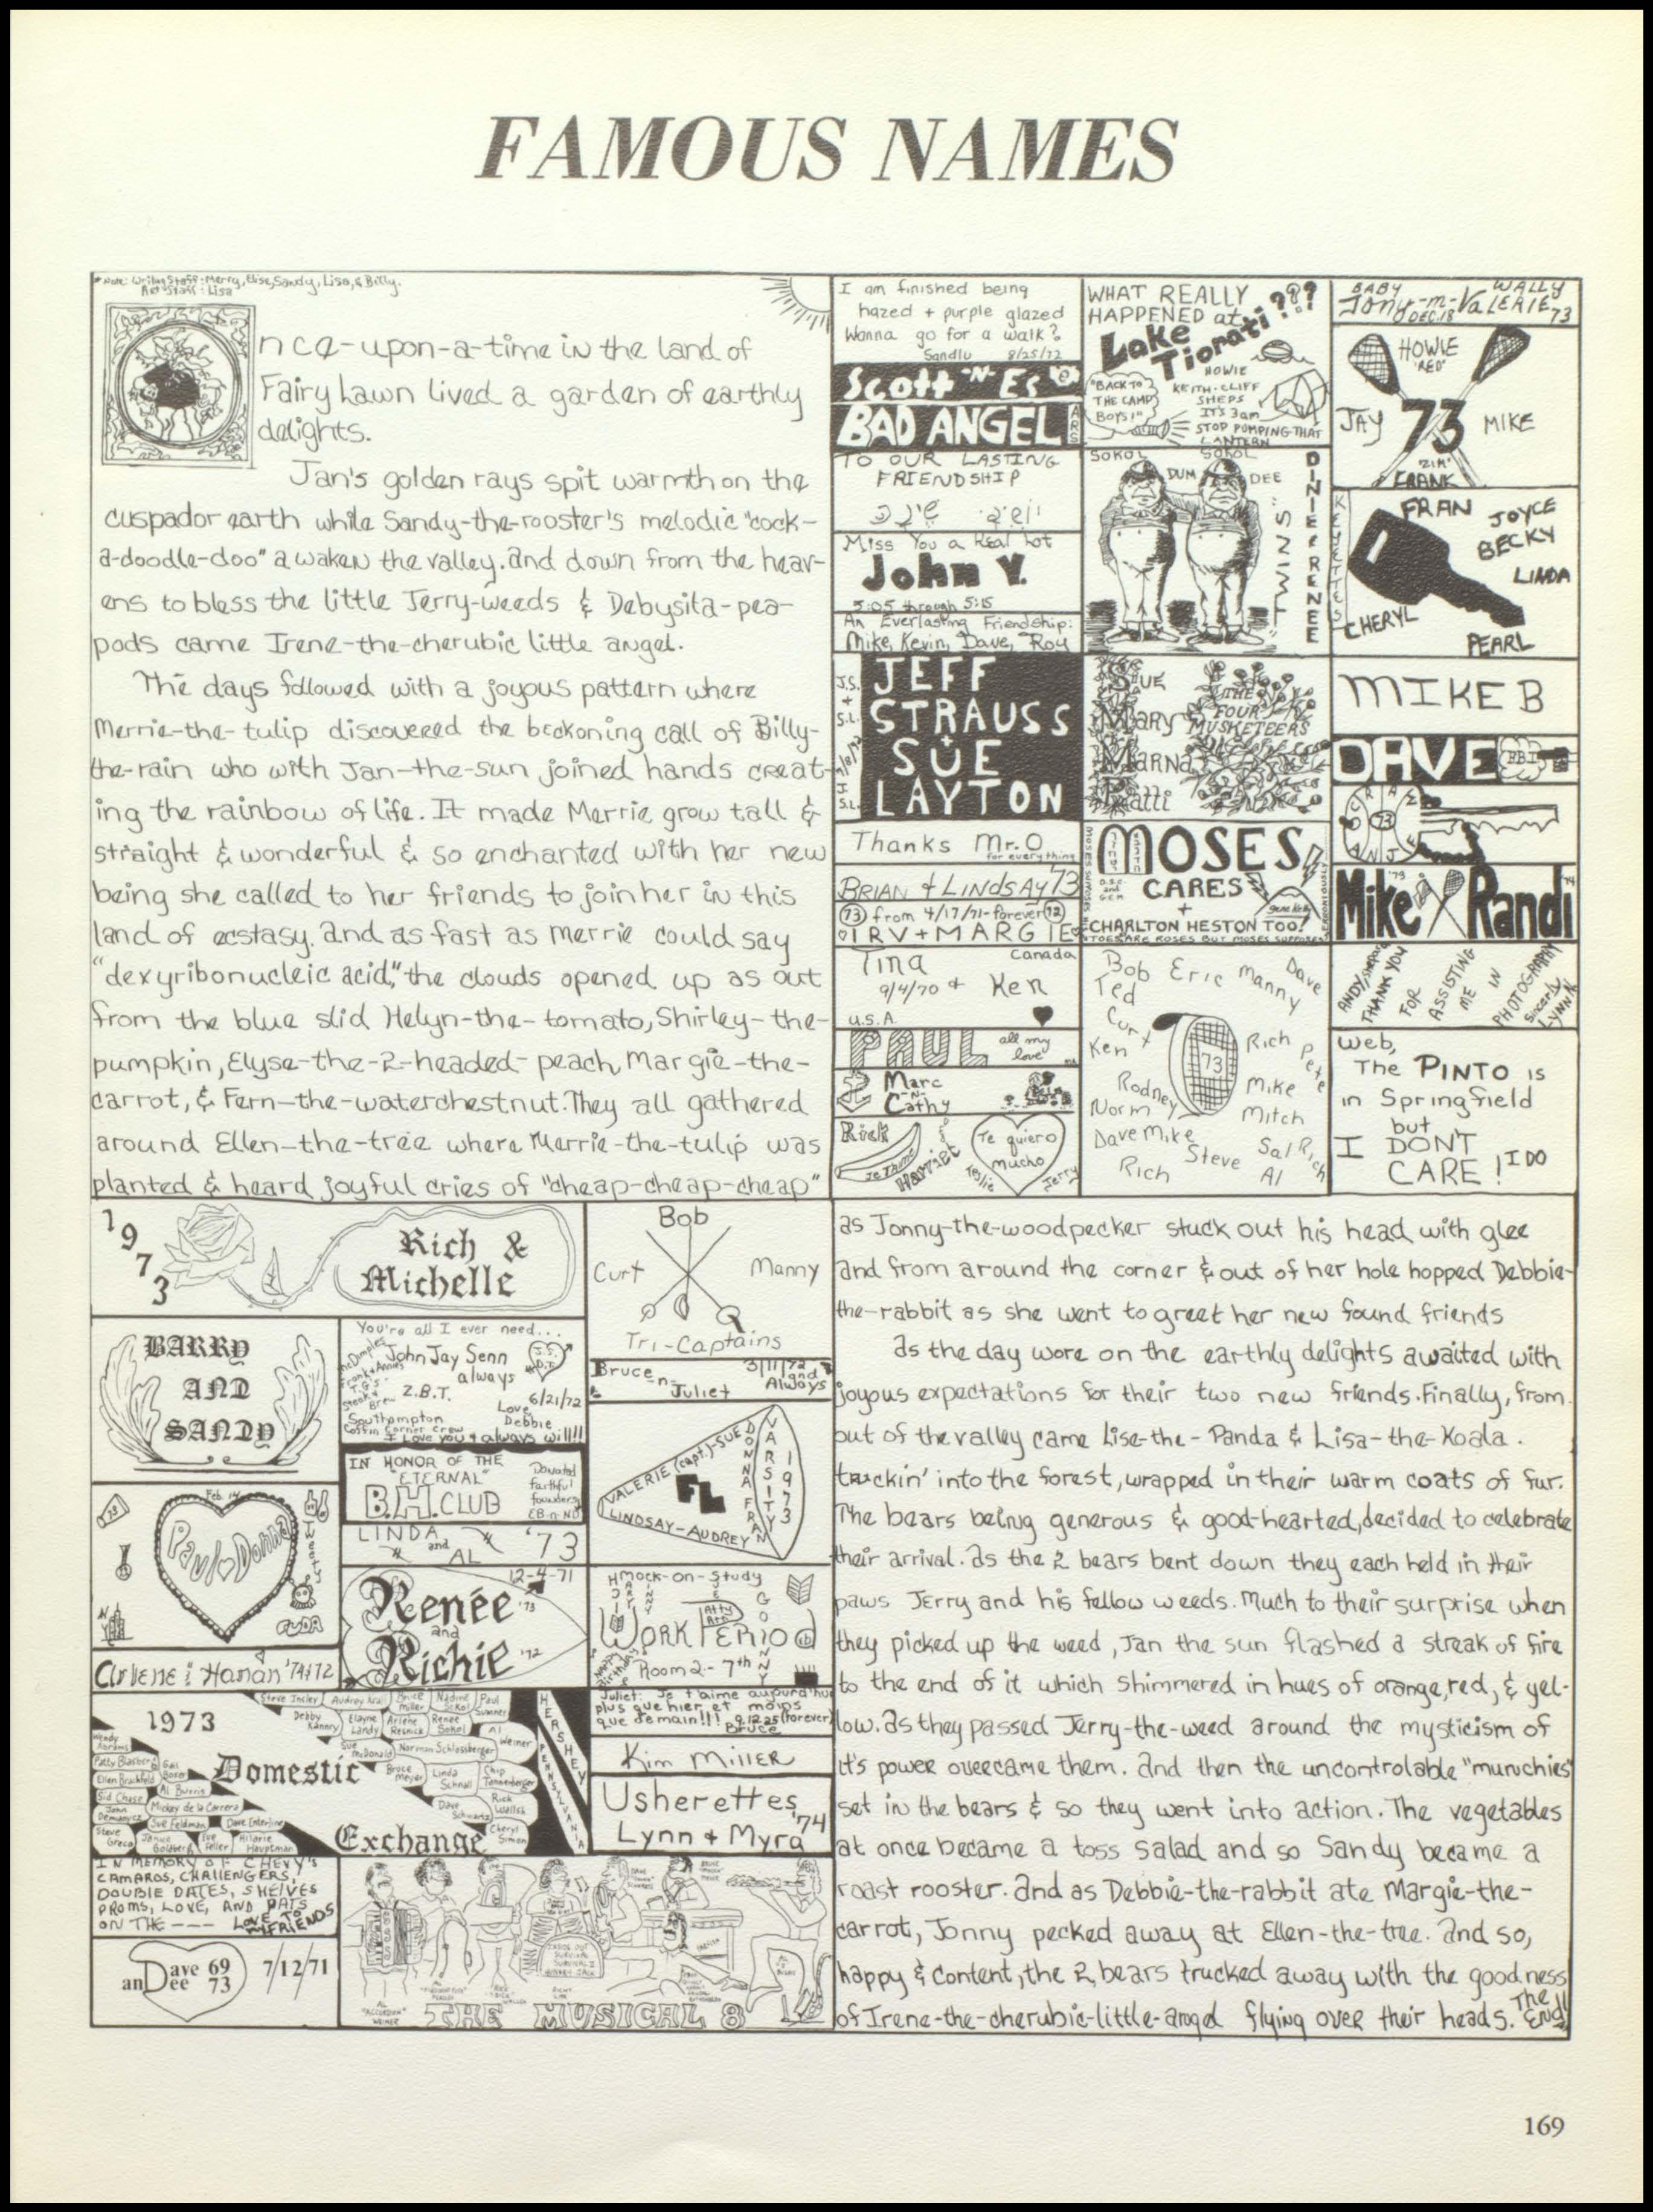 FAMOUS NAMES
*Note: Writing Staff: Merry, Elise, Sandy, Lisa, & Billy.
Art Staff: Lisa
nce-upon-a-time in the land of
Fairy Lawn lived a garden of earthly
delights.
Jan's golden rays spit warmth on the
cuspador earth while Sandy-the-rooster's melodic "cock-
a-doodle-doo" awaken the valley. and down from the heav-
ens to bless the little Jerry-weeds & Debysita-pea-
pods came Irene-the-cherubic little angel.
The days followed with a joyous pattern where
Merrie-the-tulip discovered the beckoning call of Billy-
the-rain who with Jan-the-sun joined hands creat-
ing the rainbow of life. It made Merrie grow tall &
straight & wonderful & so enchanted with her new
being she called to her friends to join her in this
land of ecstasy. and as fast as merrie could say
"dexyribonucleic acid," the clouds opened up as out
from the blue slid Helyn-the-tomato, Shirley-the-
pumpkin, Elyse-the-2-headed-peach, Margie-the-
carrot, & Fern-the-waterchestnut. They all gathered
around Ellen-the-tree where Merrie-the-tulip was
planted & heard joyful cries of "cheap-cheap-cheap"
I am finished being
hazed + purple glazed
Wanna go for a walk?
Sandlu 8/25/72
Scott "N" Es
BAD ANGEL
TO OUR LASTING
FRIENDSHIP
Miss You a Real Lot
John V.
5:05 through 5:15
An Everlasting Friendship:
Mike, Kevin, Dave, Roy
J.S.
+
S.L.
JEFF
STRAUSS
+
SUE
LAYTON
J.
S.L.
Thanks Mr. O
for everything
BRIAN + LINDSAY '73
73 from 4/17/71-forever 72
IRV + MARGIE
Tina Canada
9/4/70 + Ken
U.S.A.
PAUL all my
love
Marc
-N-
Cathy
Rick
Je T'aime
Harriet
Te quiero
mucho
Jerry
WHAT REALLY
HAPPENED at
Lake
Tiorati???
HOWIE
KEITH-CLIFF
SHEPS
"BACK TO
THE CAMP
BOYS!"
IT'S 3am
STOP PUMPING THAT
LANTERN
SOKOL SOKOL
DUM DEE
"TWINS"
DINIE & RENEE
SUE
MARY
MARNA
Patti
THE
FOUR
MUSKETEERS
MOSES
CARES
+
CHARLTON HESTON TOO!
Bob Eric Manny Dave
Ted
Curt
Ken
73
Rich Pete
Rodney Mike
Norm Mitch
Dave Mike
Rich Steve Sal Rich
Al
BABY WALLY
Tony-m-VALERIE
DEC.18 73
HOWIE
"RED"
JAY 73 MIKE
"ZIM"
FRANK
KEYETTES
FRAN JOYCE
BECKY
LINDA
CHERYL
PEARL
MIKE B
DAVE
73
Mike '73 Randi '74
ANDY,
THANK YOU
FOR
ASSISTING
ME
IN
PHOTOGRAPHY
Sincerly
LYNN K
Web,
The PINTO is
in Springfield
but
I DON'T
CARE! I DO
1973
Rich &
Michelle
Bob
Curt Manny
Tri-Captains
BARRY
AND
SANDY
You're all I ever need...
John Jay Senn
always
Z.B.T.
6/21/72
Love,
Debbie
Southampton
Coffin Corner Crew
I Love you + always will!!!
Bruce 3/11/72
-n- and
Juliet Always
IN HONOR OF THE
"ETERNAL"
B.H. CLUB
Devoted
faithful
founders
EB-n-ND
LINDA
and
AL '73
VALERIE (capt.)-SUE
DONNA FRAN
LINDSAY-AUDREY
FL
VARSITY 1973
Feb. 14
Paul ♡ Donna
Renée '73
and
Richie '72
12-4-71
Hmock-on-Study
WORK PERIOD
Room 2 - 7th
Arlene & Hanan '74 + '72
1973
Domestic
Exchange
HERSHEY
PENNSYLVANIA
Steve Insley
Audrey Krall
Bruce Miller
Nadine Sokol
Paul Sumner
Debby Kannry
Elayne Landy
Arlene Resnick
Renee Sokol
Al Weiner
Sue McDonald
Norman Schlossberger
Wendy Abrams
Patty Blasberg
Gail Boxer
Bruce Meyer
Linda Schnall
Chip Tannenberger
Ellen Brachfeld
Al Burris
Sid Chase
Mickey de la Carrera
Dave Schwartz
Rick Wallsh
Sue Feldman
Dave Enterline
Cheryl Simon
Steve Greco
Janice Goldberg
Eve Feller
Hilarie Hauptman
Juliet: Je t'aime aujourd'hui
plus que hier et moins
que demain!!! 9.12.25 (forever)
Bruce
Kim Miller
Usherettes
Lynn + Myra '74
IN MEMORY OF CHEVY'S
CAMAROS, CHALLENGERS,
DOUBLE DATES, SHELVES
PROMS, LOVE, AND PATS
ON THE --- LOVE TO
FRIENDS
Dave 69
an Dee 73
7/12/71
AL
"ACCORDION"
WEINER
THE MUSICAL 8
as Jonny-the-woodpecker stuck out his head with glee
and from around the corner & out of her hole hopped Debbie-
the-rabbit as she went to greet her new found friends
as the day wore on the earthly delights awaited with
joyous expectations for their two new friends. Finally, from
out of the valley came Lise-the-Panda & Lisa-the-Koala.
truckin' into the forest, wrapped in their warm coats of fur.
The bears being generous & good-hearted, decided to celebrate
their arrival. as the 2 bears bent down they each held in their
paws Jerry and his fellow weeds. Much to their surprise when
they picked up the weed, Jan the sun flashed a streak of fire
to the end of it which shimmered in hues of orange, red, & yel-
low. as they passed Jerry-the-weed around the mysticism of
it's power overcame them. and then the uncontrolable "munchies"
set in the bears & so they went into action. The vegetables
at once became a toss salad and so Sandy became a
roast rooster. and as Debbie-the-rabbit ate Margie-the-
carrot, Jonny pecked away at Ellen-the-tree. and so,
happy & content, the 2 bears trucked away with the goodness
of Irene-the-cherubic-little-angel flying over their heads. The
End!
169